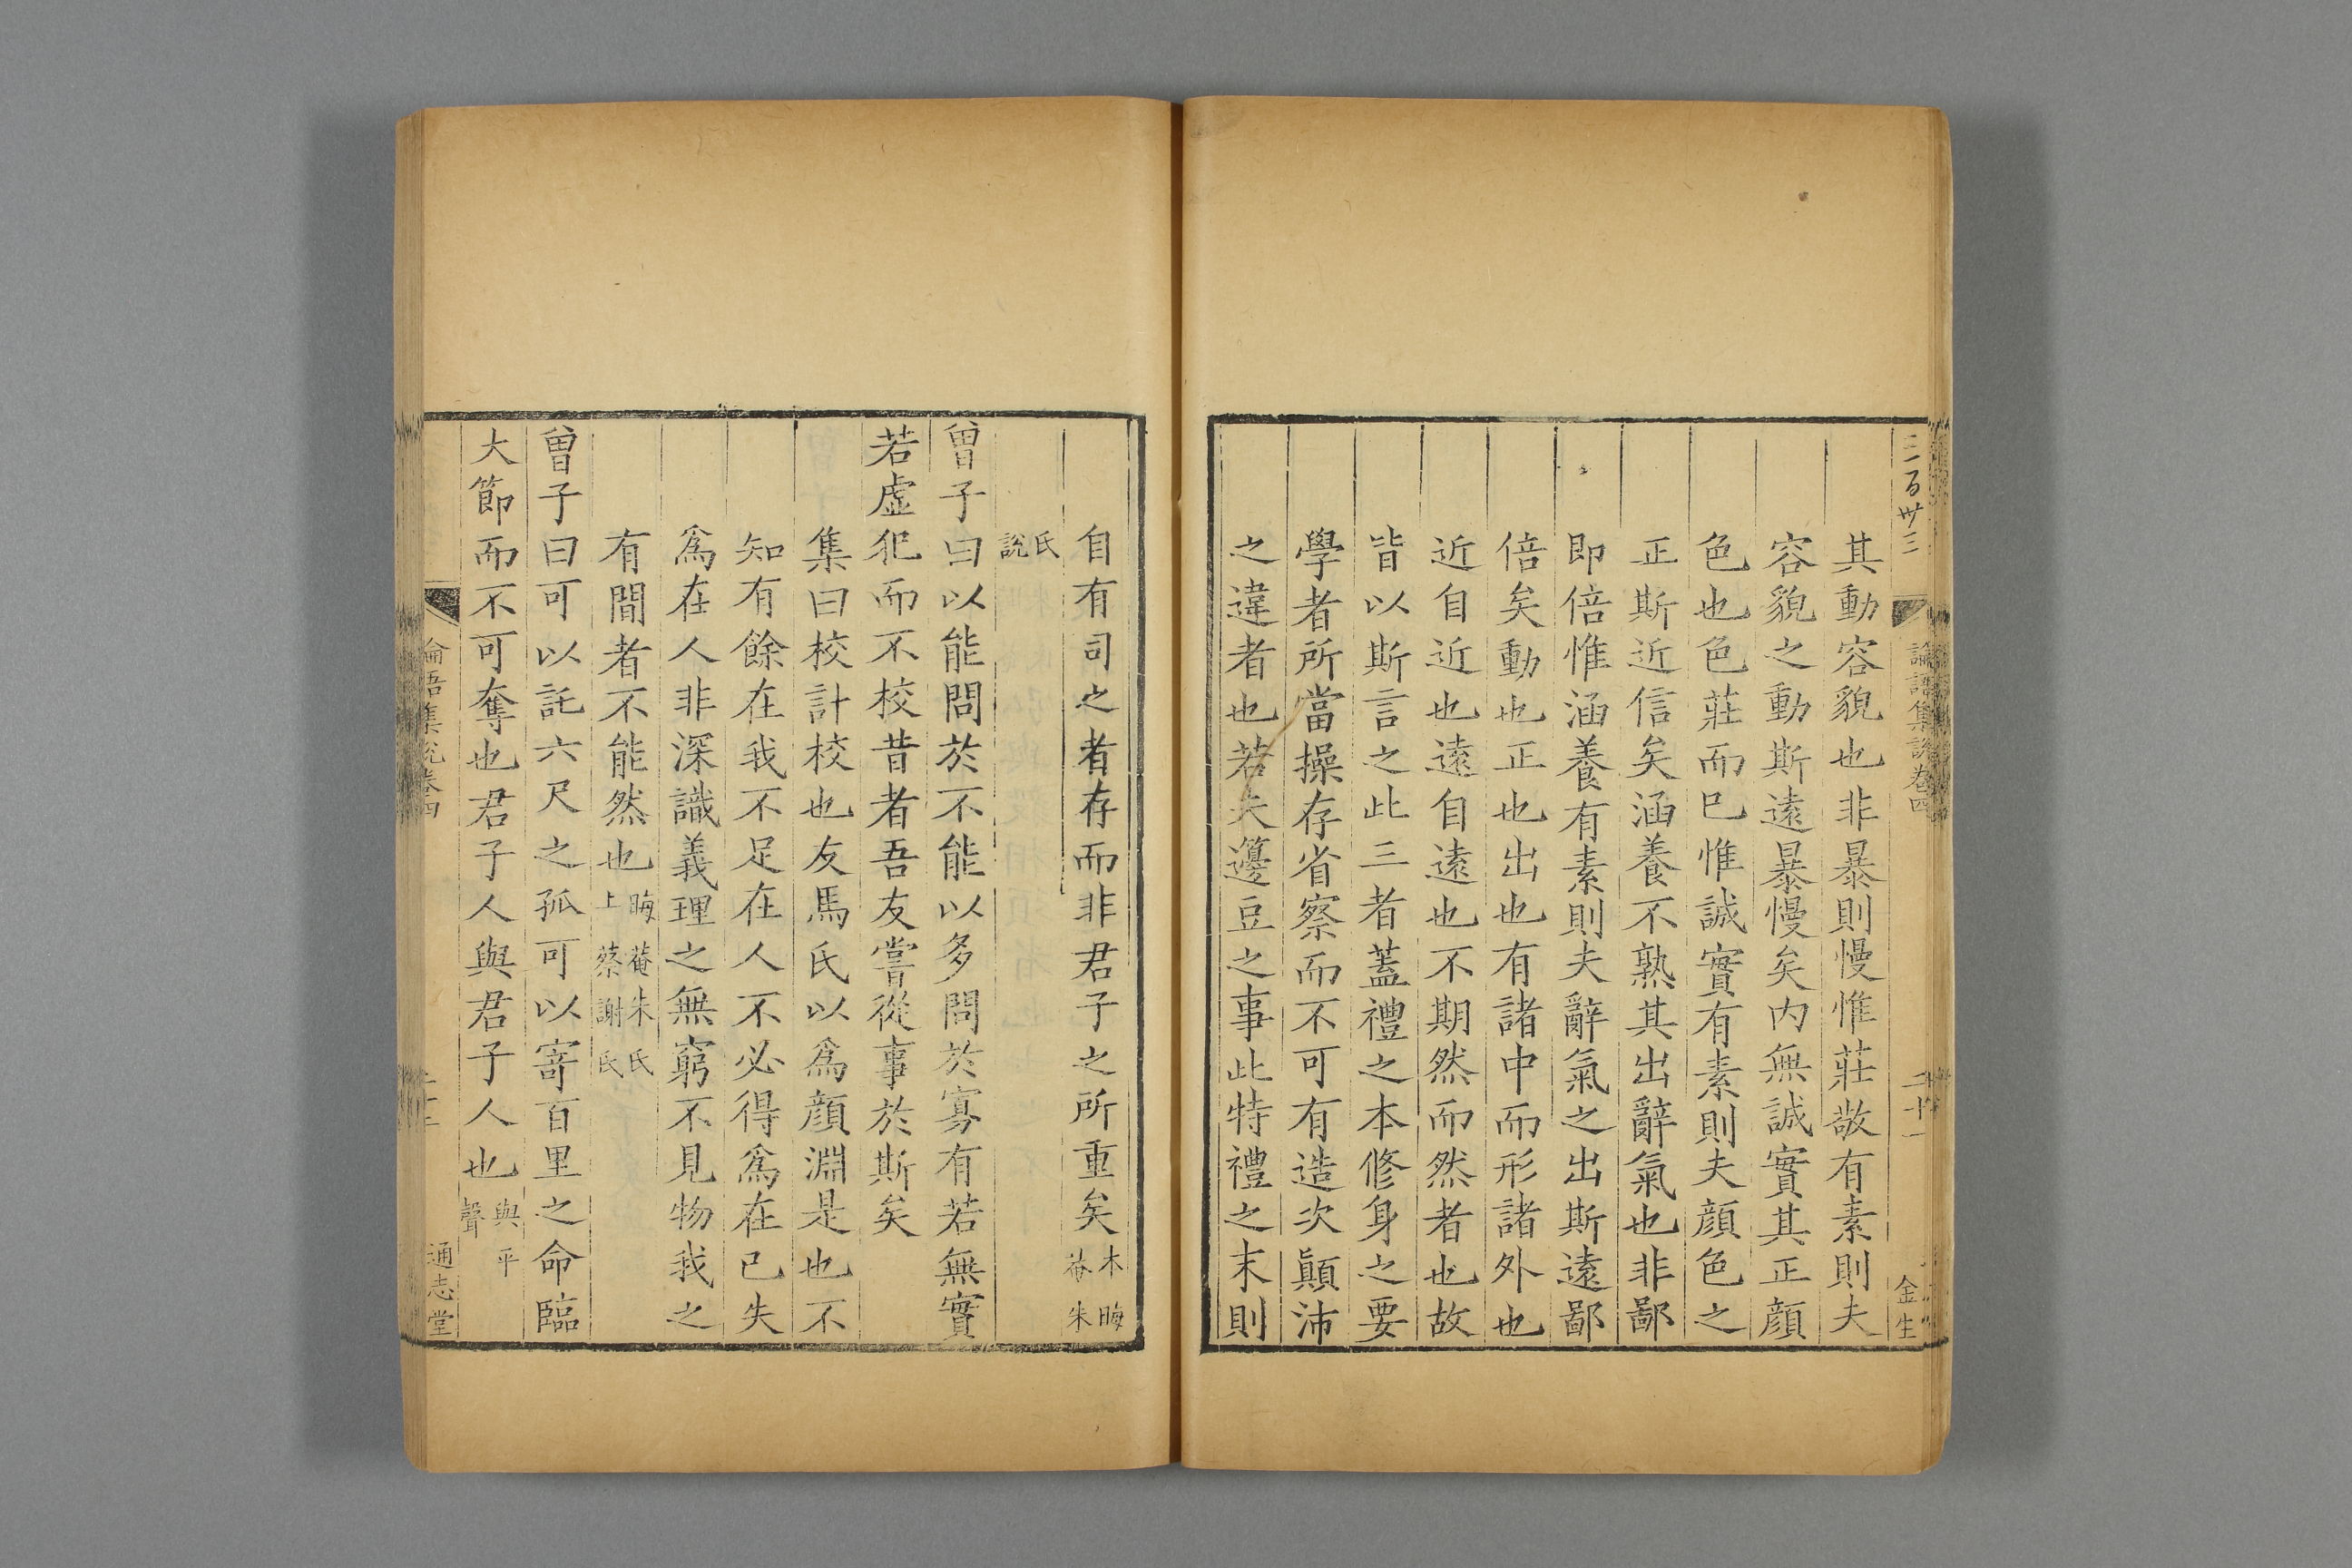 三百卅三
論語集說卷四
二十一
金生
其動容貌也非暴則慢惟莊敬有素則夫
容貌之動斯遠暴慢矣内無誠實其正顔
色也色莊而巳惟誠實有素則夫顔色之
正斯近信矣涵養不熟其出辭氣也非鄙
即倍惟涵養有素則夫辭氣之出斯遠鄙
倍矣動也正也出也有諸中而形諸外也
近自近也遠自遠也不期然而然者也故
皆以斯言之此三者蓋禮之本修身之要
學者所當操存省察而不可有造次顛沛
之違者也若夫籩豆之事此特禮之末則
自有司之者存而非君子之所重矣本晦菴朱
氏說
曽子曰以能問於不能以多問於寡有若無實
若虛犯而不校昔者吾友嘗從事於斯矣
集曰校計校也友馬氏以爲顔淵是也不
知有餘在我不足在人不必得爲在己失
爲在人非深識義理之無窮不見物我之
有間者不能然也晦菴朱氏上蔡謝氏
曽子曰可以託六尺之孤可以寄百里之命臨
大節而不可奪也君子人與君子人也與平聲
論語集說卷四
通志堂